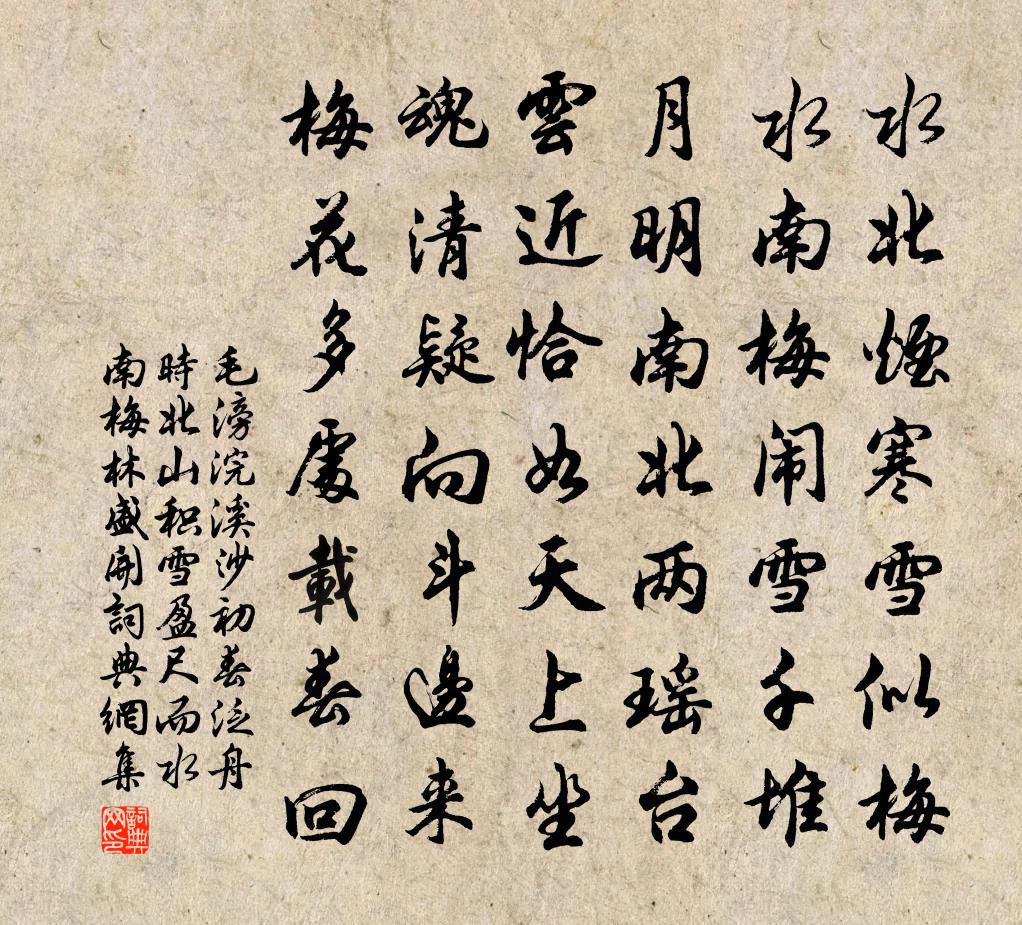 水北煙寒雪似梅
水南梅闹雪千堆
月明南北两瑶台
雲近恰如天上坐
魂清疑向斗邊来
梅花多處載春回
毛滂浣溪沙初春泛舟
時北山积雪盈尺而水
南梅林盛開詞典網集
詞典
网印